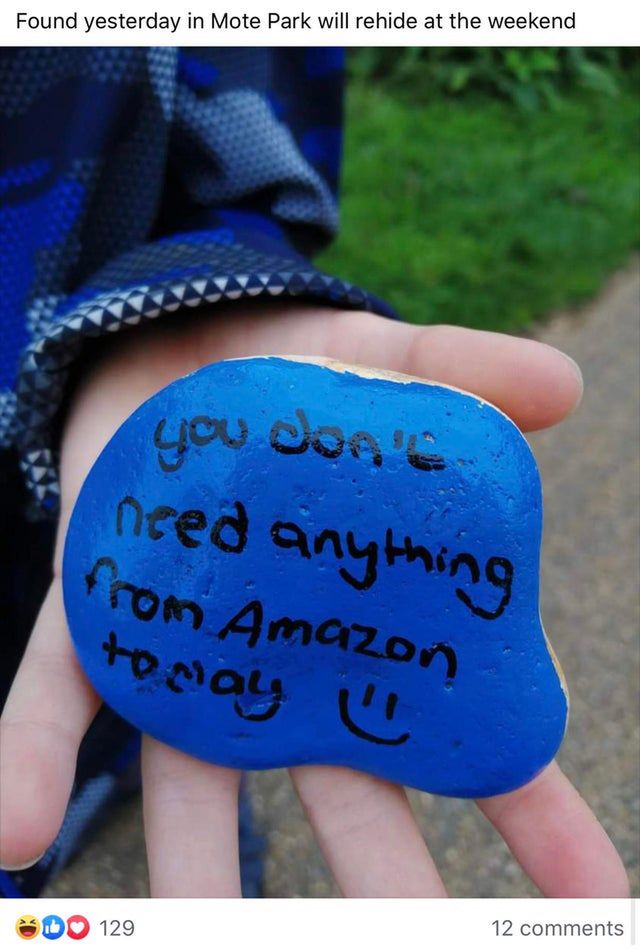 Found yesterday in Mote Park will rehide at the weekend
you don't
need anything
from Amazon
today
129
12 comments